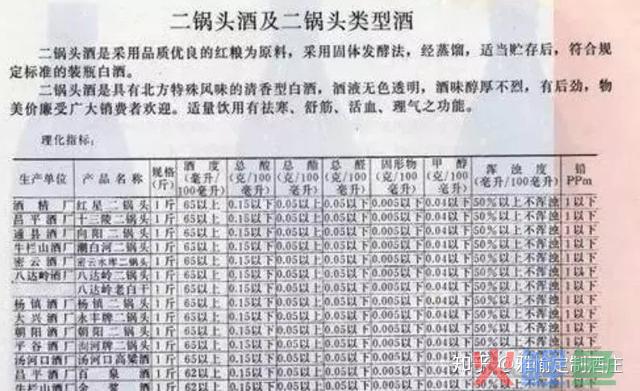 二锅头酒及二锅头类型酒
二锅头酒是采用品质优良的红粮为原料，采用固体发酵法，经蒸馏，适当贮存后，符合规
定标准的装瓶白酒。
二锅头酒是具有北方特殊风味的清香型白酒，酒液无色透明，酒味醇厚不烈，有后劲，物
美价廉受广大消费者欢迎。适量饮用有祛寒、舒筋、活血、理气之功能。
理化指标：
生产单位 产品名称 规格(斤) 酒度(毫升/100毫升) 总酸(克/100毫升) 总酯(克/100毫升) 总醛(克/100毫升) 固形物(克/100毫升) 甲醇(克/100毫升) 浑浊度(毫升/100毫升) 铅PPm
酒精厂 红星二锅头 1斤 65以上 0.15以下 0.05以上 0.05以下 0.005以下 0.04以下 50%以上不浑浊 1以下
昌平酒厂 十三陵二锅头 1斤 65以上 0.15以下 0.05以上 0.05以下 0.005以下 0.04以下 50%以上不浑浊 1以下
通县酒厂 向阳二锅头 1斤 65以上 0.15以下 0.05以上 0.05以下 0.005以下 0.04以下 50%以上不浑浊 1以下
牛栏山酒厂 潮白河二锅头 1斤 65以上 0.15以下 0.05以上 0.05以下 0.005以下 0.04以下 50%以上不浑浊 1以下
密云酒厂 密云水库二锅头 1斤 65以上 0.15以下 0.05以上 0.05以下 0.005以下 0.04以下 50%以上不浑浊 1以下
八达岭酒厂 八达岭二锅头 1斤 65以上 0.15以下 0.05以上 0.05以下 0.005以下 0.04以下 50%以上不浑浊 1以下
八达岭老白干 1斤 65以上 0.15以下 0.05以上 0.05以下 0.005以下 0.04以下 50%以上不浑浊 1以下
杨镇酒厂 杨镇二锅头 1斤 65以上 0.15以下 0.05以上 0.05以下 0.005以下 0.04以下 50%以上不浑浊 1以下
大兴酒厂 永丰牌二锅头 1斤 65以上 0.15以下 0.05以上 0.05以下 0.005以下 0.04以下 50%以上不浑浊 1以下
朝阳酒厂 朝阳二锅头 1斤 65以上 0.15以下 0.05以上 0.05以下 0.005以下 0.04以下 50%以上不浑浊 1以下
平谷酒厂 河牌二锅头 1斤 65以上 0.15以下 0.05以上 0.05以下 0.005以下 0.04以下 50%以上不浑浊 1以下
汤河口酒厂 汤河口高粱酒 1斤 65以上 0.15以下 0.05以上 0.05以下 0.005以下 0.04以下
昌平酒厂 百泉酒 1斤 62以上 0.15以下 0.05以上 0.05以下 0.005以下 0.04以下
牛栏山酒厂 金浆 1斤 62以上 0.15以下 0.05以上 0.05以下 0.005以下 0.04以下
知乎 定制酒庄